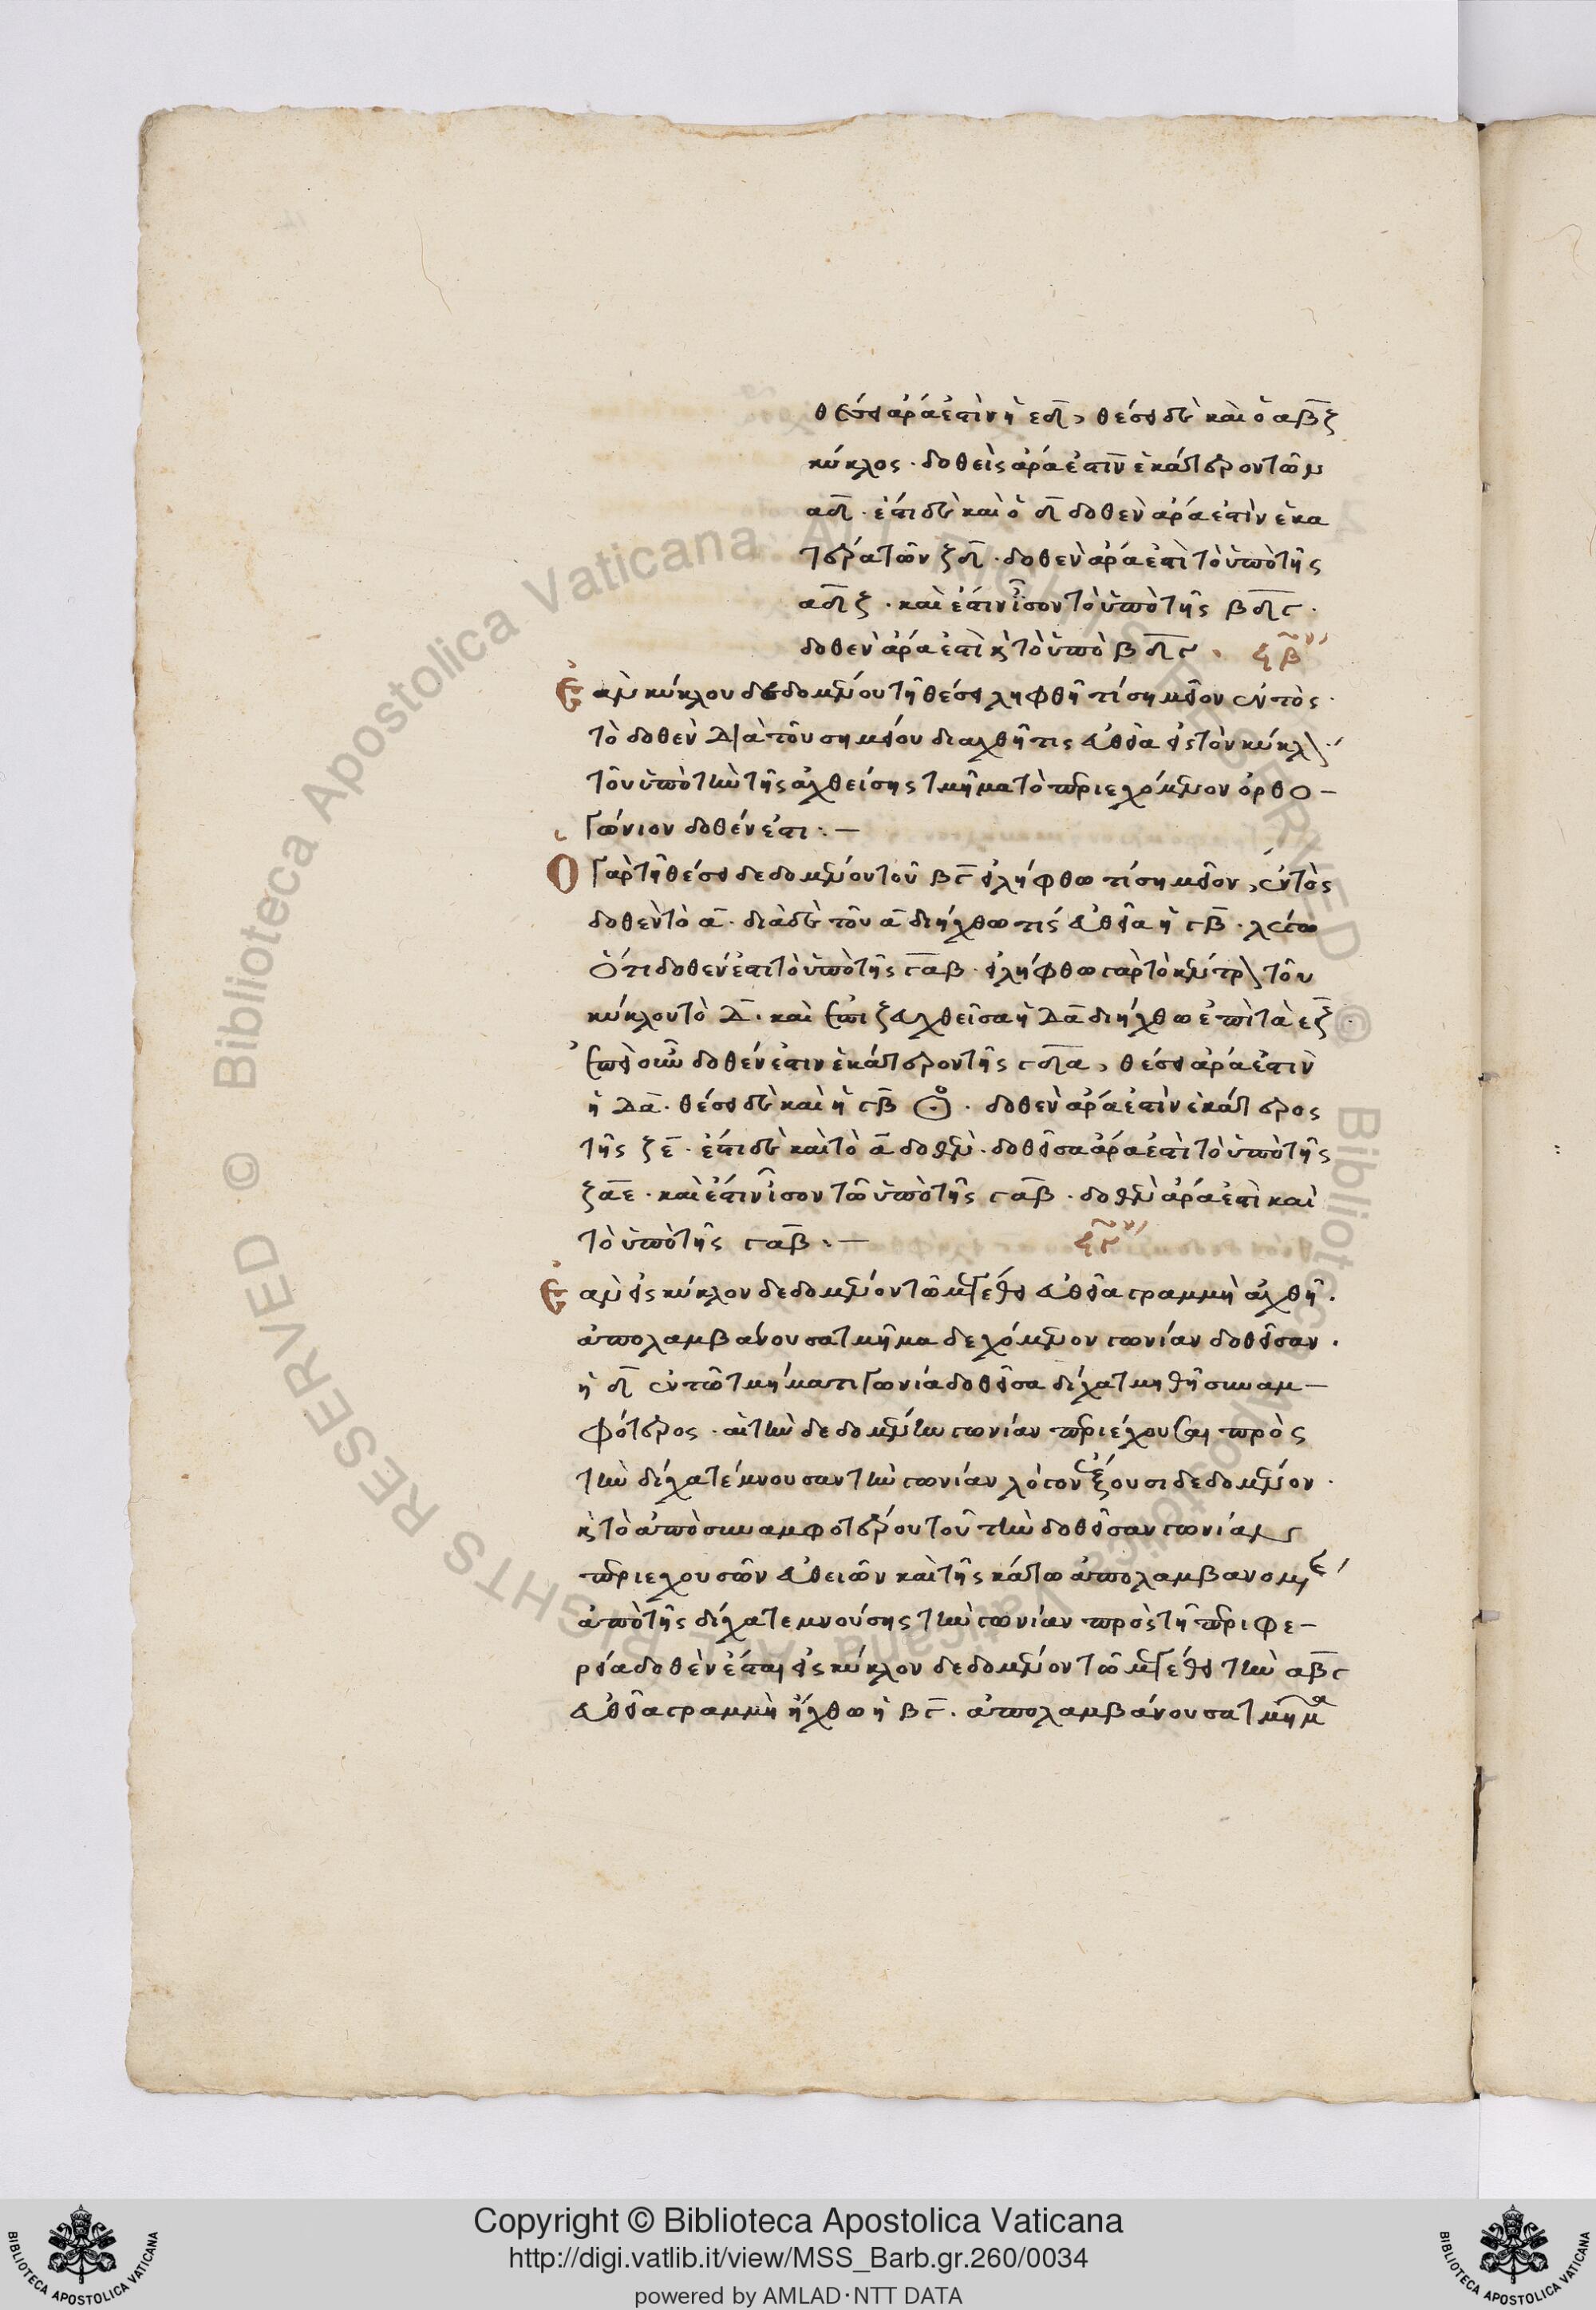 θέσει ἄρα ἐστὶν ἡ εδ, θέσει δὲ καὶ ὁ αβζ
κύκλος · δοθεὶς ἄρα ἐστὶν ἑκάτερον τῶν
αδ · ἔστι δὲ καὶ ὁ δ δοθὲν ἄρα ἐστὶν ἑκα
τέρα τῶν ζδ · δοθὲν ἄρα ἐστὶ τὸ ὑπὸ τῆς
αδζ · καὶ ἔστιν ἴσον τὸ ὑπὸ τῆς βδγ ·
δοθὲν ἄρα ἐστὶ κ τὸ ὑπὸ βδγ · ϟβ
Ἐὰν κύκλου δεδομένου τῇ θέσει ληφθῇ τί σημεῖον ἐντὸς ·
τὸ δοθὲν διὰ τοῦ σημείου διαχθῇ τις εὐθεῖα εἰς τὸν κύκλ
τὸν ὑπὸ τὼν τῆς ἀχθείσης τμῆμα τὸ περιεχόμενον ὀρθο–
γώνιον δοθέν ἐστι :–
Ὁ γὰρ τῇ θέσει δεδομένου τοῦ βγ εἰλήφθω τί σημεῖον, ἐντὸς
δοθὲν τὸ α · διὰ δὲ τοῦ α διήχθω τις εὐθεῖα ἡ γβ · λέγω
ὅτι δοθέν ἐστι τὸ ὑπὸ τῆς γαβ · εἰλήφθω γὰρ τὸ κέντρ τοῦ
κύκλου τὸ δ · καὶ ἐπιζευχθεῖσα ἡ δα διήχθω ἐπὶ τὰ εζ
ἐπεὶ οὖν δοθέν ἐστιν ἑκάτερον τῆς γδα, θέσει ἄρα ἐστὶν
ἡ δα · θέσει δὲ καὶ ἡ γβ · δοθὲν ἄρα ἐστὶν ἑκάτερος
τῆς ζε · ἔστι δὲ καὶ τὸ α δοθὲν · δοθεῖσα ἄρα ἐστὶ τὸ ὑπὸ τῆς
ζαε · καὶ ἔστιν ἴσον τῶ ὑπὸ τῆς γαβ · δοθὲν ἄρα ἐστὶ καὶ
τὸ ὑπὸ τῆς γαβ :– ϟγ
Ἐὰν εἰς κύκλον δεδομένον τῶ μεγέθει εὐθεῖα γραμμὴ ἀχθῇ ·
ἀπολαμβάνουσα τμῆμα δεχόμενον γωνίαν δοθεῖσαν ·
ἡ δ ἐν τῶ τμήματι γωνία δοθεῖσα δίχα τμηθῇ συναμ–
φότερος · αἱ τὴν δεδομένην γωνίαν περιέχουσαι πρὸς
τὴν δίχα τέμνουσαν τὴν γωνίαν λόγον ἕξουσι δεδομένον ·
κ τὸ ἀπὸ συναμφοτέρου τοῦ τὴν δοθεῖσαν γωνίαν
περιεχουσῶν εὐθειῶν καὶ τῆς κάτω ἀπολαμβανομεν
ἀπὸ τῆς δίχα τεμνούσης τὴν γωνίαν πρὸς τῇ περιφε–
ρεία δοθὲν ἔσται εἰς κύκλον δεδομένον τῶ μεγέθει τὴν αβγ
εὐθεῖα γραμμὴ ἤχθω ἡ βγ · ἀπολαμβάνουσα τμῆμα
Copyright © Biblioteca Apostolica Vaticana
http://digi.vatlib.it/view/MSS_Barb.gr.260/0034
powered by AMLAD·NTT DATA